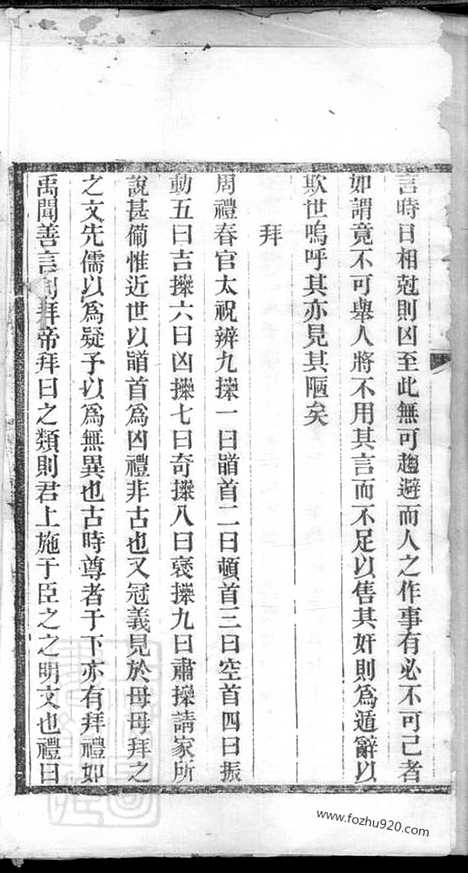 言時日相尅則凶至此無可趨避而人之作事有必不可已者
如謂竟不可舉人將不用其言而不足以售其奸則爲遁辭以
欺世嗚呼其亦見其陋矣
拜
周禮春官太祝辨九𢷎一曰䭫首二曰頓首三曰空首四曰振
動五曰吉𢷎六曰凶𢷎七曰奇𢷎八曰褒𢷎九曰肅𢷎諸家所
說甚備惟近世以䭫首爲凶禮非古也又冠義見於母母拜之
之文先儒以爲疑予以爲無異也古時尊者于下亦有拜禮如
禹聞善言則拜帝拜曰之類則君上施于臣之之明文也禮曰
www.fozhu920.com